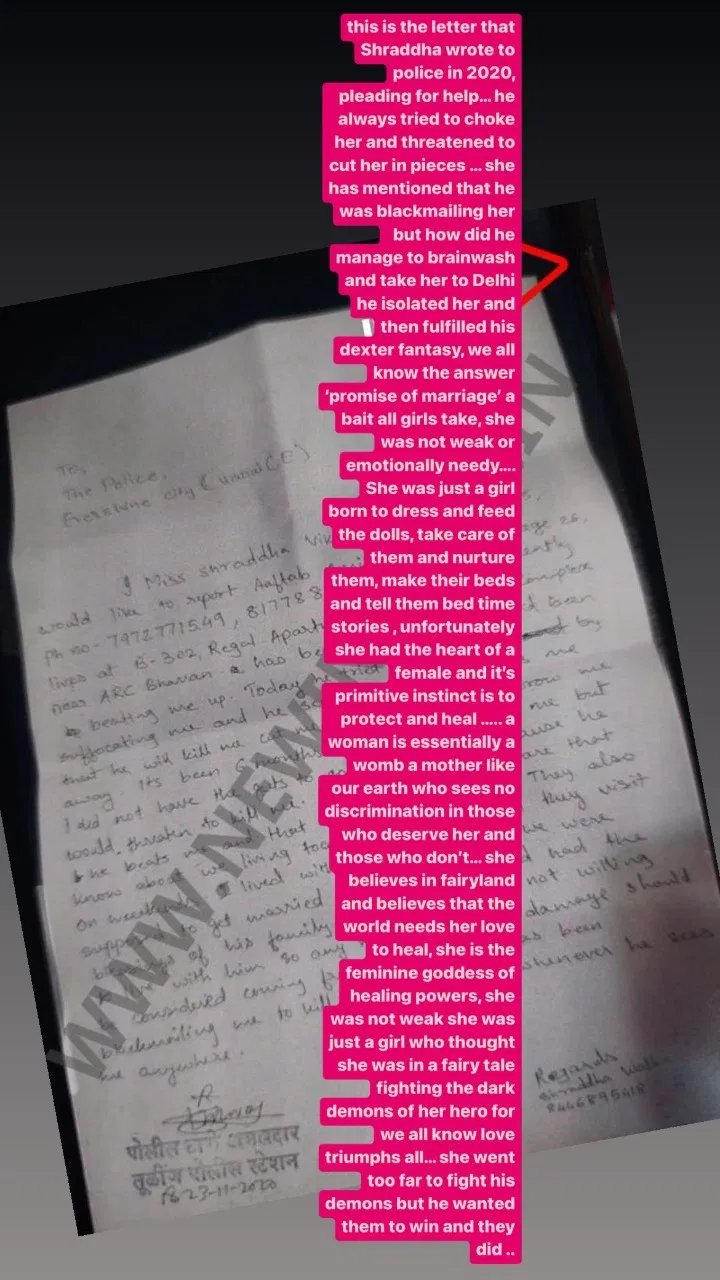 this is the letter that
Shraddha wrote to
police in 2020,
pleading for help... he
always tried to choke
her and threatened to
cut her in pieces ... she
has mentioned that he
was blackmailing her
but how did he
manage to brainwash
and take her to Delhi
he isolated her and
then fulfilled his
dexter fantasy, we all
know the answer
‘promise of marriage’ a
bait all girls take, she
was not weak or
emotionally needy....
She was just a girl
born to dress and feed
the dolls, take care of
them and nurture
them, make their beds
and tell them bed time
stories , unfortunately
she had the heart of a
female and it’s
primitive instinct is to
protect and heal ..... a
woman is essentially a
womb a mother like
our earth who sees no
discrimination in those
who deserve her and
those who don’t... she
believes in fairyland
and believes that the
world needs her love
to heal, she is the
feminine goddess of
healing powers, she
was not weak she was
just a girl who thought
she was in a fairy tale
fighting the dark
demons of her hero for
we all know love
triumphs all... she went
too far to fight his
demons but he wanted
them to win and they
did ..
To,
The Police,
I Miss Shraddha age 26,
would like to report Aaftab
ph no-
lives at B-302, Regal complex
near ARC Bhavan has been
beating me up. Today he tried by
suffocating me and he me
that he will kill me throw me
away. Its been 6 months me but
I did not have the guts to because he
would threaten to kill me. are that
he beats me and that They also
know about we living they visit
on weekends I lived with we were
supposed to get married had the
blessings of his family not willing
to live with him so any damage should
be considered coming has been
blackmailing me to kill whenever he sees
me anywhere.
Regards
Shraddha
पोलीस ठाणे अंमलदार
तुळींज पोलीस स्टेशन
23-11-2020